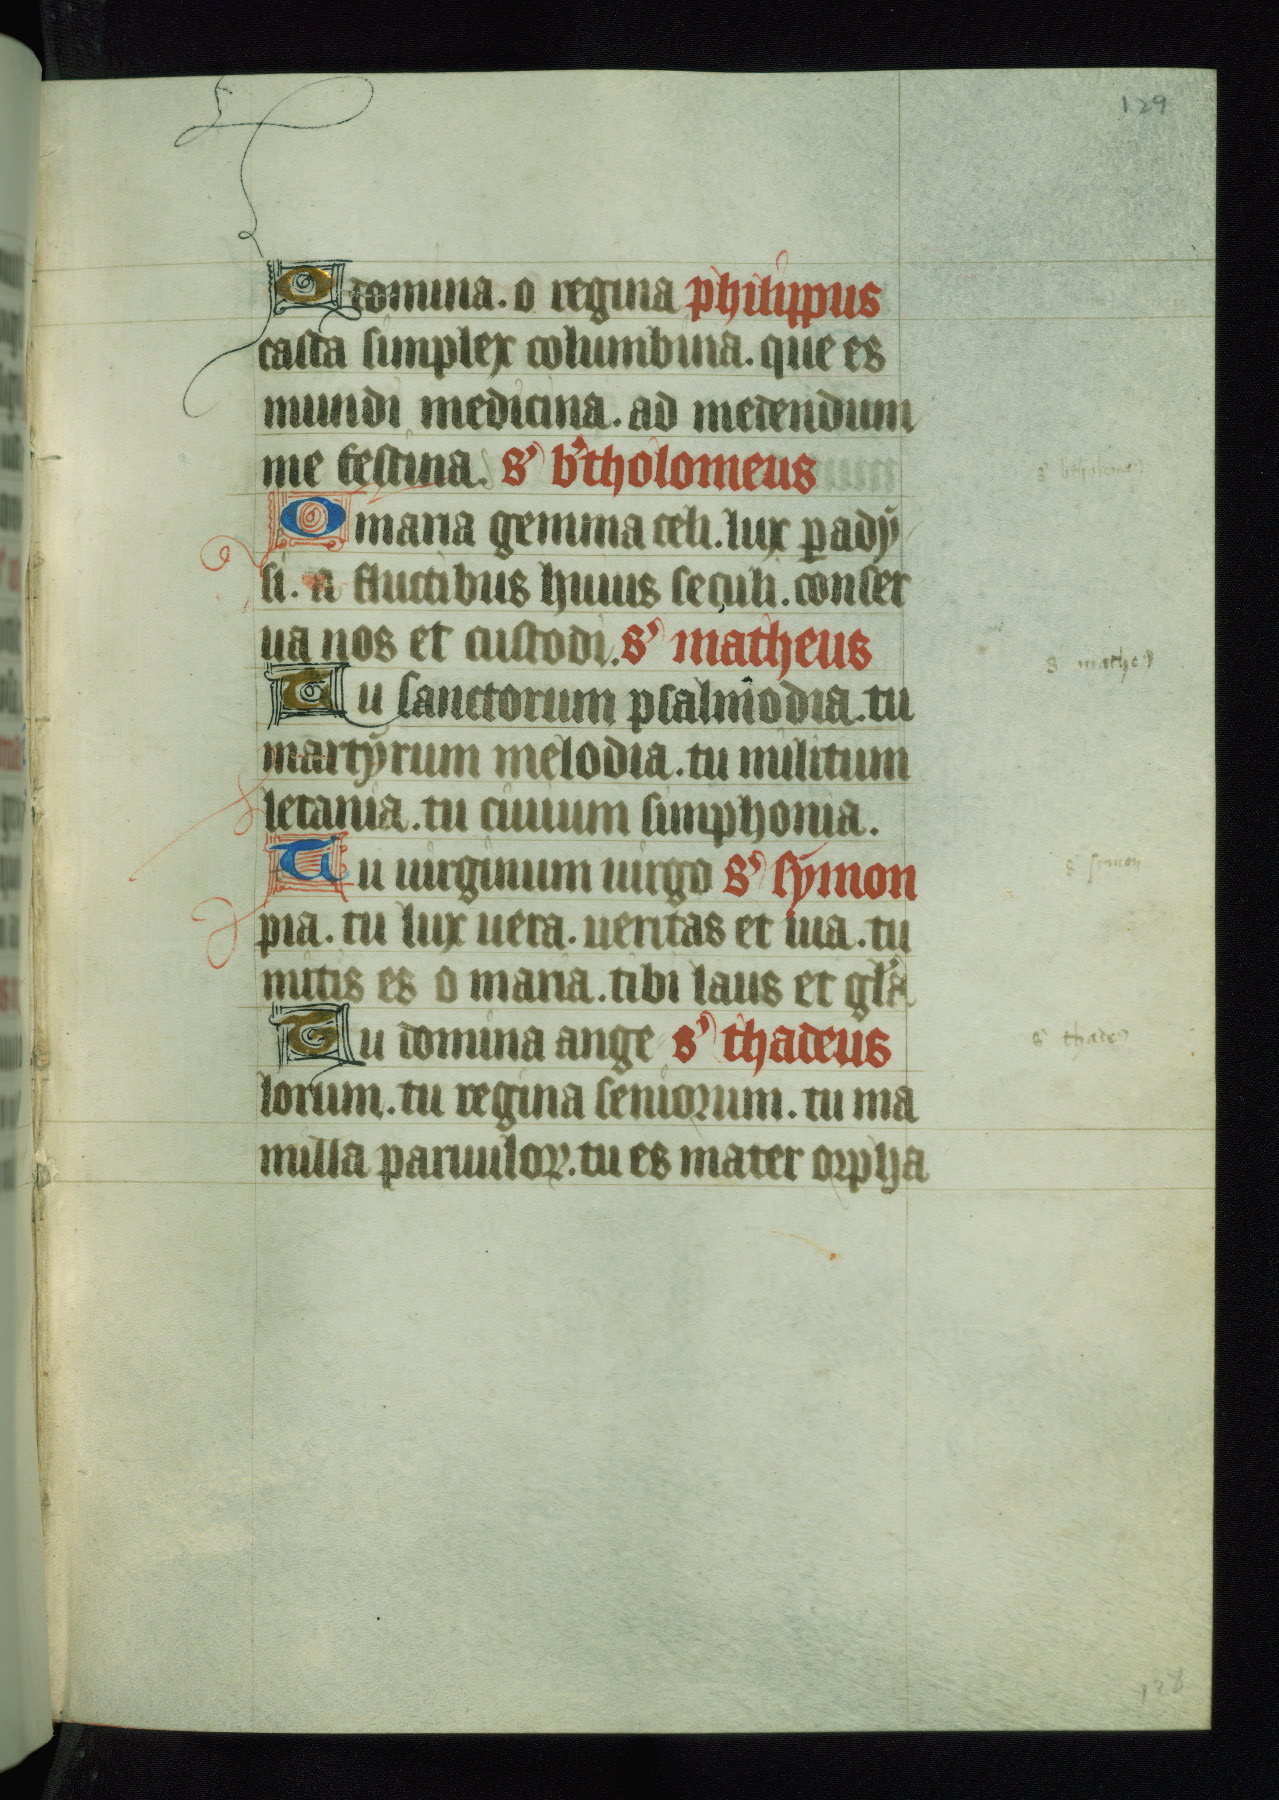 129
O domina. o regina philippus
casta simplex columbina. que es
mundi medicina. ad metendum
me festina. s' b'tholomeus
s' btholome9
O maria gemma celi. lux pady
si. a fluctibus huius seculi. conser
ua nos et custodi. s' matheus
s mathe9
Tu sanctorum psalmodia. tu
martyrum melodia. tu militum
letania. tu ciuium simphonia.
Tu uirginum uirgo s' symon
s' symon
pia. tu lux uera. ueritas et uia. tu
mitis es o maria. tibi laus et gl'a
Tu domina ange s' thadeus
s' thade9
lorum. tu regina seniorum. tu ma
milla paruuloꝝ. tu es mater orpha
128